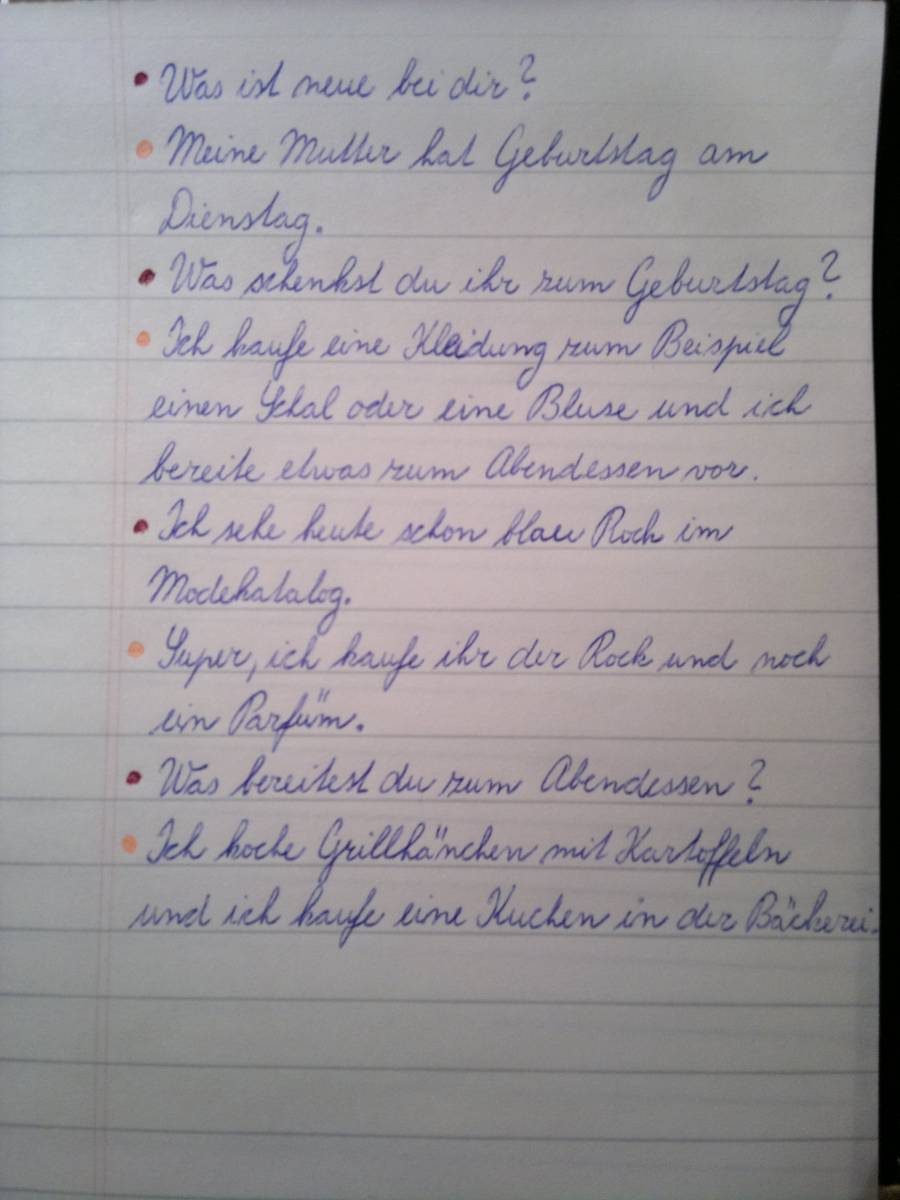 • Was ist neue bei dir?
• Meine Mutter hat Geburtstag am
Dienstag.
• Was schenkst du ihr zum Geburtstag?
• Ich kaufe eine Kleidung zum Beispiel
einen Schal oder eine Bluse und ich
bereite etwas zum Abendessen vor.
• Ich sehe heute schon blau Rock im
Modekatalog.
• Super, ich kaufe ihr der Rock und noch
ein Parfüm.
• Was bereitest du zum Abendessen?
• Ich koche Grillhänchen mit Kartoffeln
und ich kaufe eine Kuchen in der Bäckerei.